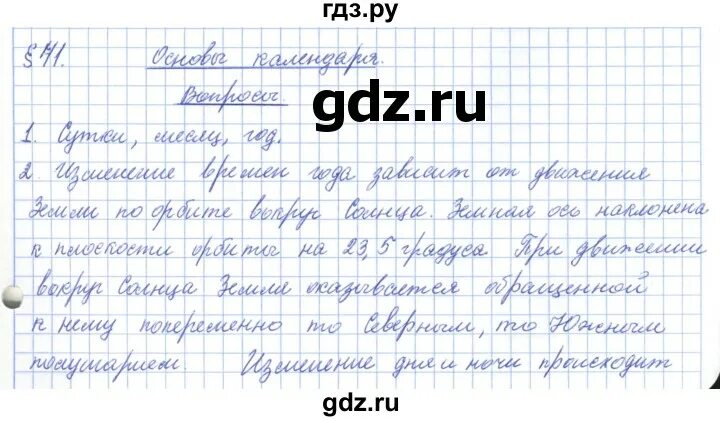 гдз.ру
§71. Основы календаря.
Вопросы.
gdz.ru
1. Сутки, месяц, год.
2. Изменение времен года зависит от движения
Земли по орбите вокруг Солнца. Земная ось наклонена
к плоскости орбиты на 23,5 градуса. При движении
вокруг Солнца Земля оказывается обращенной
к нему попеременно то Северным, то Южным
полушарием. Изменение дня и ночи происходит
gdz.ru